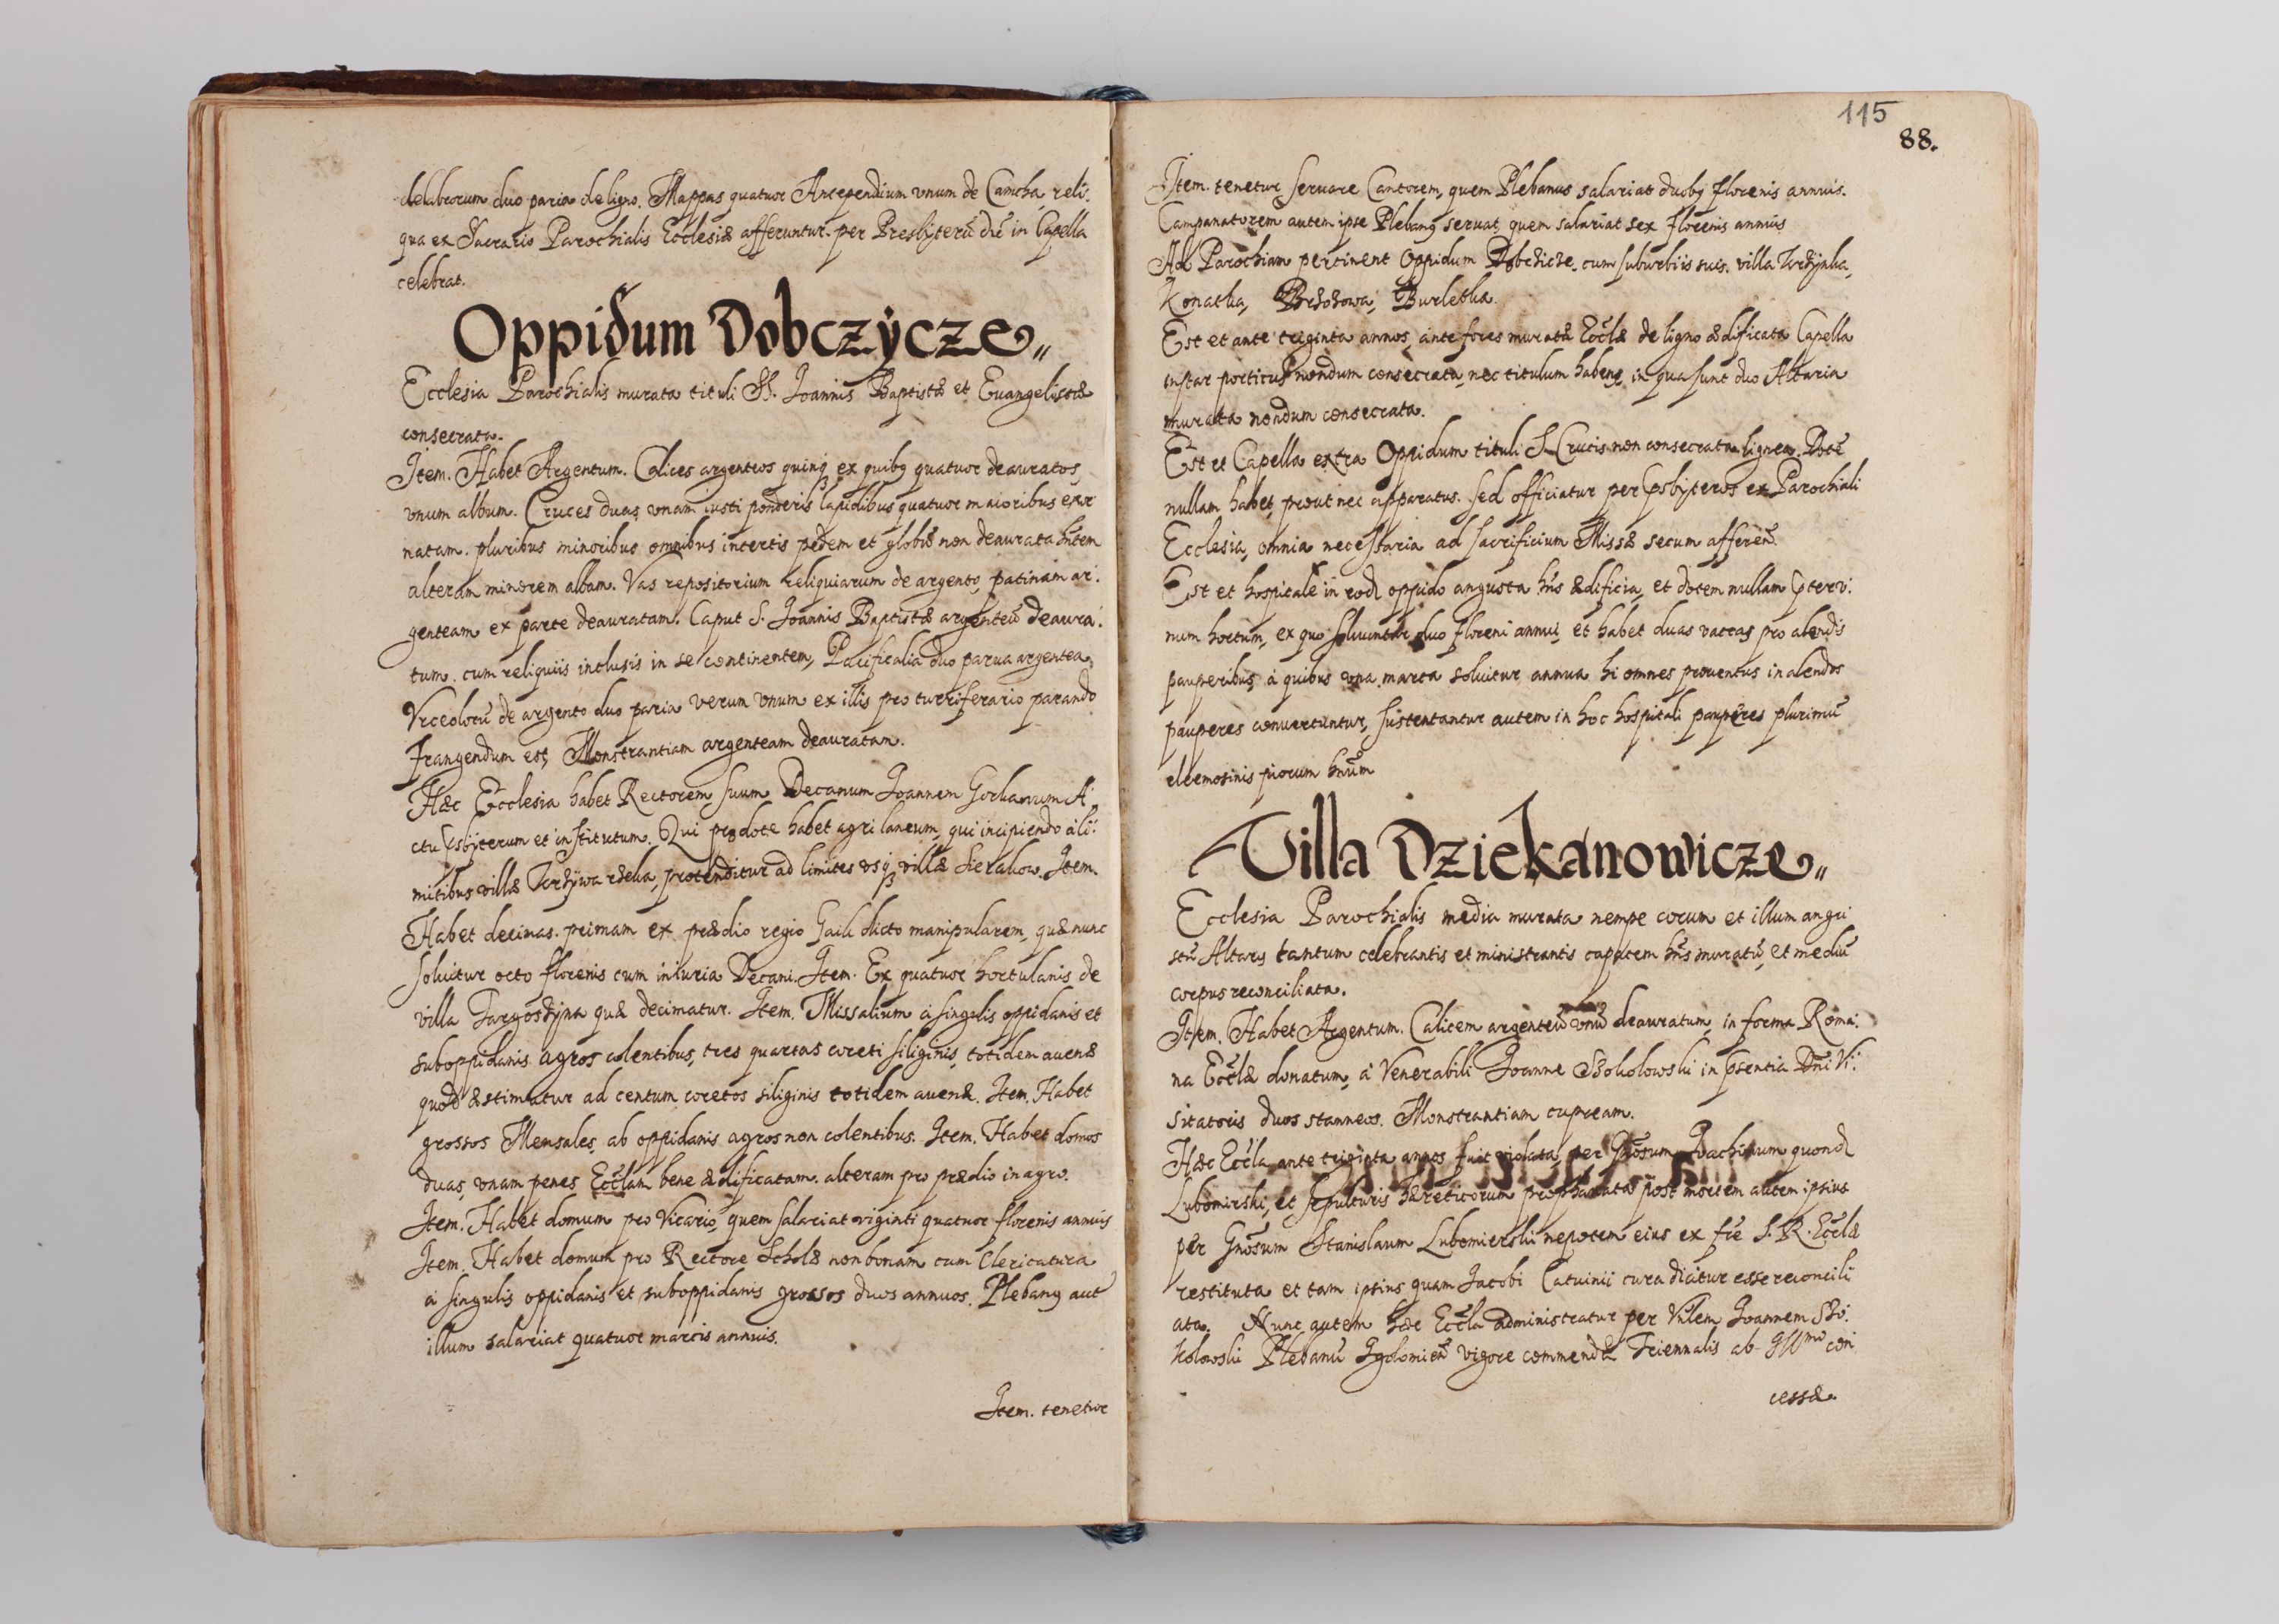 delabrorum duo paria de ligno. Mappas quatuor Antependium vnum de Camcha, reli:
qua ex Sacrario Parochialis Ecclesiæ afferuntur. per Presbyterũ dũ in Capella
celebrat.
Oppidum Dobczycze„
Ecclesia Parochialis murata tituli SS. Joannis Baptistæ et Euangelistæ
consecrata.
Item. Habet Argentum. Calices argenteos quinq; ex quibꝫ quatuor deauratos,
vnum album. Cruces duas vnam iusti ponderis lapidibus quatuor maioribus exor
natam. pluribus minoribus omnibus intertis pedem et globũ non deaurata hñtem
alteram minorem albam. Vas repositorium reliquiarum de argento, patinam ar:
genteam ex parte deauratam. Caput S. Joannis Baptistæ argenteũ deaura:
tum. cum reliquiis inclusis in se continentem, Pacificalia duo parua argentea,
Vrceolorũ de argento duo paria verum vnum ex illis pro turriferario parando
frangendum est, Monstrantiam argenteam deauratam.
Hæc Ecclesia habet Rectorem suum Decanum Joannem A:
ctu Prsbyterum et institutum. Qui pro dote habet agri laneum, qui incipiendo à li:
mitibus villæ protenditur ad limites vsq; villæ Sierakow. Item.
Habet decimas. primam ex prædio regio Gaik dicto manipularem, quæ nunc
soluitur octo florenis cum iniuria Decani. Item. Ex quatuor hortulanis de
villa Targoszyna quæ decimatur. Item. Missalium à singulis oppidanis et
suboppidanis agros colentibus, tres quartas coreti siliginis, totidem auenæ
quod æstimatur ad centum coretos siliginis totidem auenæ. Item. Habet
grossos Mensales, ab oppidanis agros non colentibus. Item. Habet domos
duas, vnam penes Eccłam bene ædificatam. alteram pro prædio in agro.
Item. Habet domum pro Vicario, quem salariat viginti quatuor florenis annuis
Item. Habet domum pro Rectore Scholæ non bonam cum Clericatura
à singulis oppidanis et suboppidanis grossos duos annuos. Plebanꝰ aut
illum salariat quatuor marcis annuis.
Item. tenetur
115
88.
Item. tenetur seruare Cantorem, quem Plebanus salariat duobꝫ florenis annuis.
Campanatorem autem ipse Plebanꝰ seruat, quem salariat sex florenis annuis
Ad Parochiam pertinent Oppidum Dobczicze. cum suburbiis suis. villa
Konatka, Brzozowa, Burletka.
Est et ante triginta annos, ante fores muratæ Eccłæ de ligno ædificata Capella
instar porticus nondum consecrata, nec titulum habens, in qua sunt duo Altaria
murata nondum consecrata.
Est et Capella extra Oppidum tituli S. Crucis non consecrata lignea. Dotẽ
nullam habet, prout nec apparatus. Sed officiatur per Prsbyteros ex Parochiali
Ecclesia, omnia necessaria ad sacrificium Missæ secum afferen̄.
Est et hospitale in eod oppido angusta hñs ædificia, et dotem nullam præter v:
num hortum, ex quo soluuntur duo floreni annui, et habet duas vaccas pro alendis
pauperibus, à quibus vna marca soluitur annua hi omnes prouentus in alendos
pauperes conuertuntur, sustentantur autem in hoc hospitali pauperes plurimũ
eleemosinis piorum hñum
Villa Dziekanowicze„
Ecclesia Parochialis media murata nempe corum et illum angu
stũ Altaris tantum celebrantis et ministrantis capacem hñs muratũ, et mediũ
corpus reconciliata.
Item. Habet Argentum. Calicem argenteũ vnũ deauratum, in forma Roma:
na Eccłæ donatum, à Venerabili Joanne Szokolowski in præsentia Dñi Vi:
sitatoris duos stanneos. Monstrantiam cupream.
Hæc Eccła ante triginta annos fuit violata, per Gñosum Joachimum quond
Lubomirski, et sepulturis hæreticorum prophanata post mortem autem ipsius
per Gnosum Stanislaum Lubomierski nepotem eius ex fře S. R. Eccłæ
restituta et tam ipsius quam Jacobi Catuinii cura dicitur esse reconcili
ata. Nunc autem hæc Eccła administratur per Vnlem Joannem Szo:
kolowski Plebanũ Igolomien̄ vigore commendæ Triennalis ab Illmo con
cessæ.